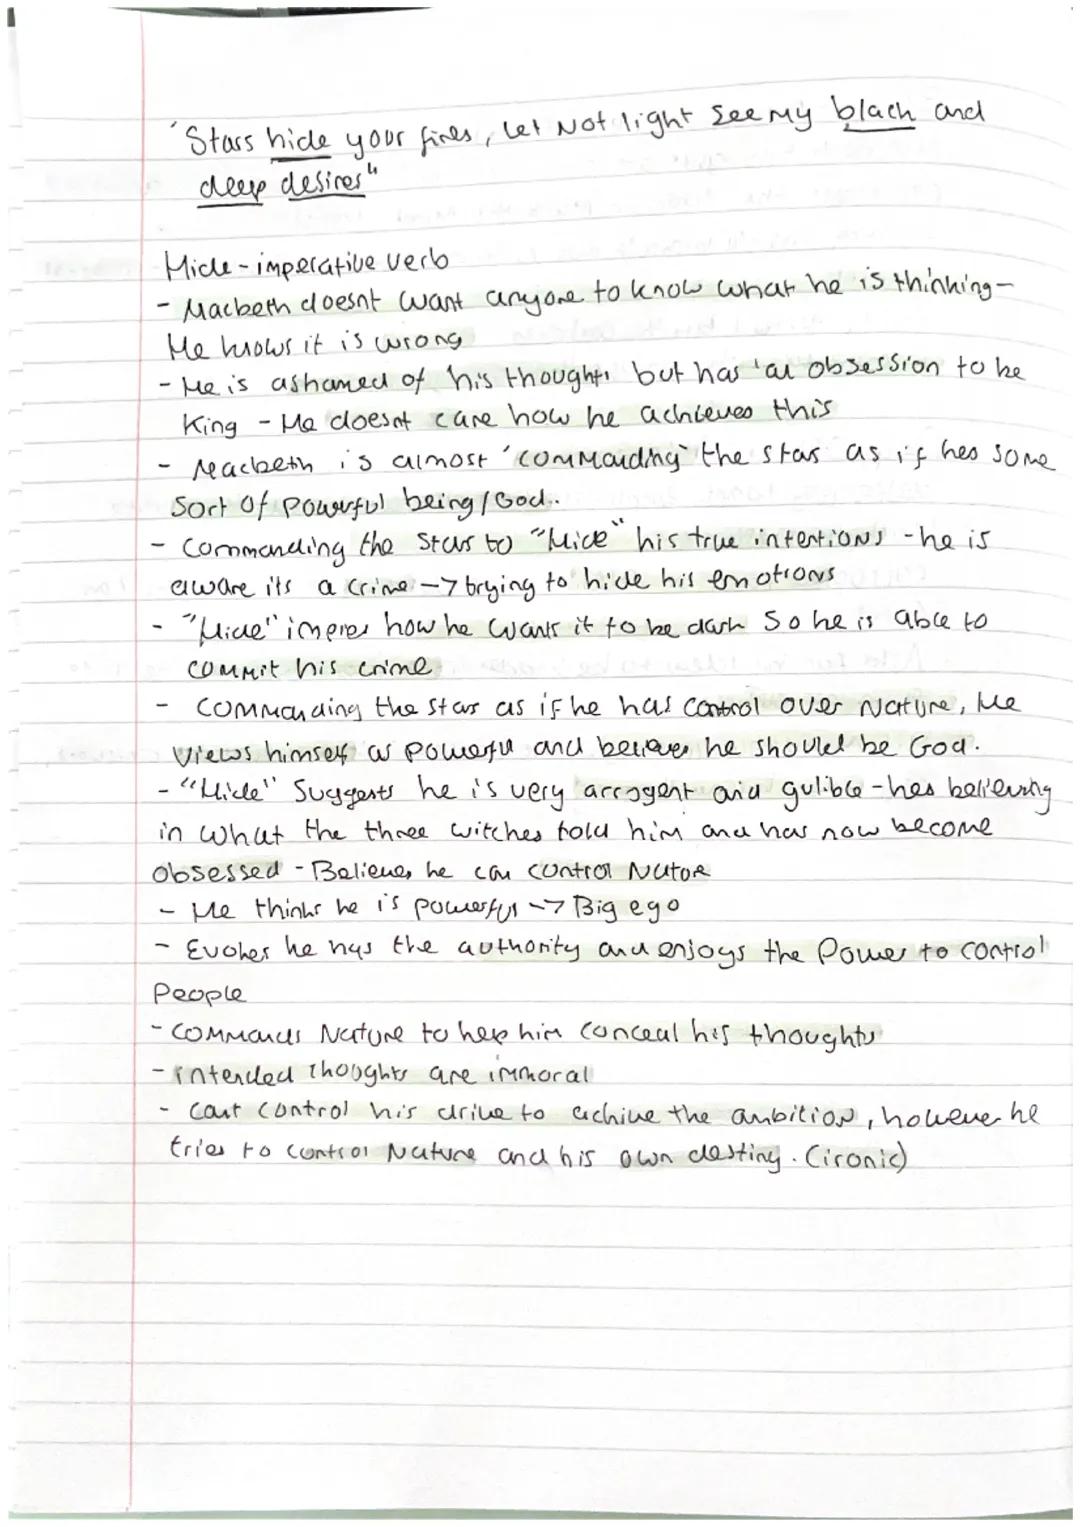 "Stars hide your fires, let Not light See My black and
deep desires"
Hide - imperative verb
- Macbeth doesnt want anyone to know what he is thinking -
He knows it is wrong
- He is ashamed of his thoughts but has an obsession to be
King - He doesnt care how he achieves this
- Macbeth is almost 'commanding' the stas as if hes some
Sort Of Powerful being/God..
- Commanding the Stars to "Hide" his true intentions - he is
aware its a crime -> trying to hide his emotions
- "Hide" how he wants it to be dark So he is able to
commit his crime
- Commanding the stars as if he has control over Nature, He
Views himself as powerful and believes he should be God.
- "Hide" Suggests he is very arrogent and gulible - hes believing
in what the three witches told him and has now become
Obsessed - Believes he can control Nature
- He thinks he is powerful -> Big ego
- Evokes he has the authority and enjoys the Power to control
People
- Commands Nature to help him conceal his thoughts
- intended thoughts are immoral
- Cant control his drive to achive the ambition, however he
tries to control Nature and his own destiny. (ironic)